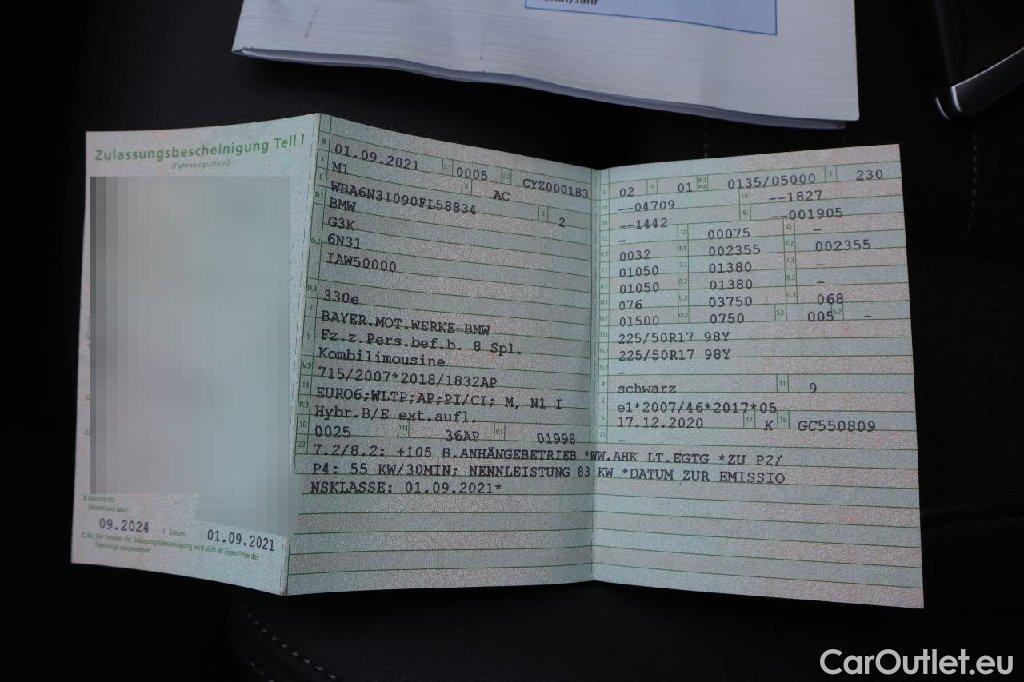 Zulassungsbescheinigung Teil I
(Fahrzeugschein)
09.2024
Datum: 01.09.2021
01.09.2021 0005 CYZ000183
M1 AC
WBA6N31090FL58834 2
BMW
G3K
6N31
IAW50000
330e
BAYER.MOT.WERKE-BMW
Fz.z.Pers.bef.b. 8 Spl.
Kombilimousine
715/2007*2018/1832AP
EURO6;WLTP;AP;PI/CI; M, N1 I
Hybr.B/E ext.aufl.
0025 36AP 01998
7.2/8.2: +105 B.ANHÄNGEBETRIEB *WW.AHK LT.EGTG *ZU P2/
P4: 55 KW/30MIN; NENNLEISTUNG 83 KW *DATUM ZUR EMISSIO
NSKLASSE: 01.09.2021*
02 01 0135/05000 230
--04709 --1827
--1442 -001905
- 00075 -
0032 002355 002355
01050 01380 -
01050 01380 -
076 03750 068
01500 0750 005 -
225/50R17 98Y
225/50R17 98Y
-
schwarz 9
e1*2007/46*2017*05
17.12.2020 K GC550809
-
CarOutlet.eu